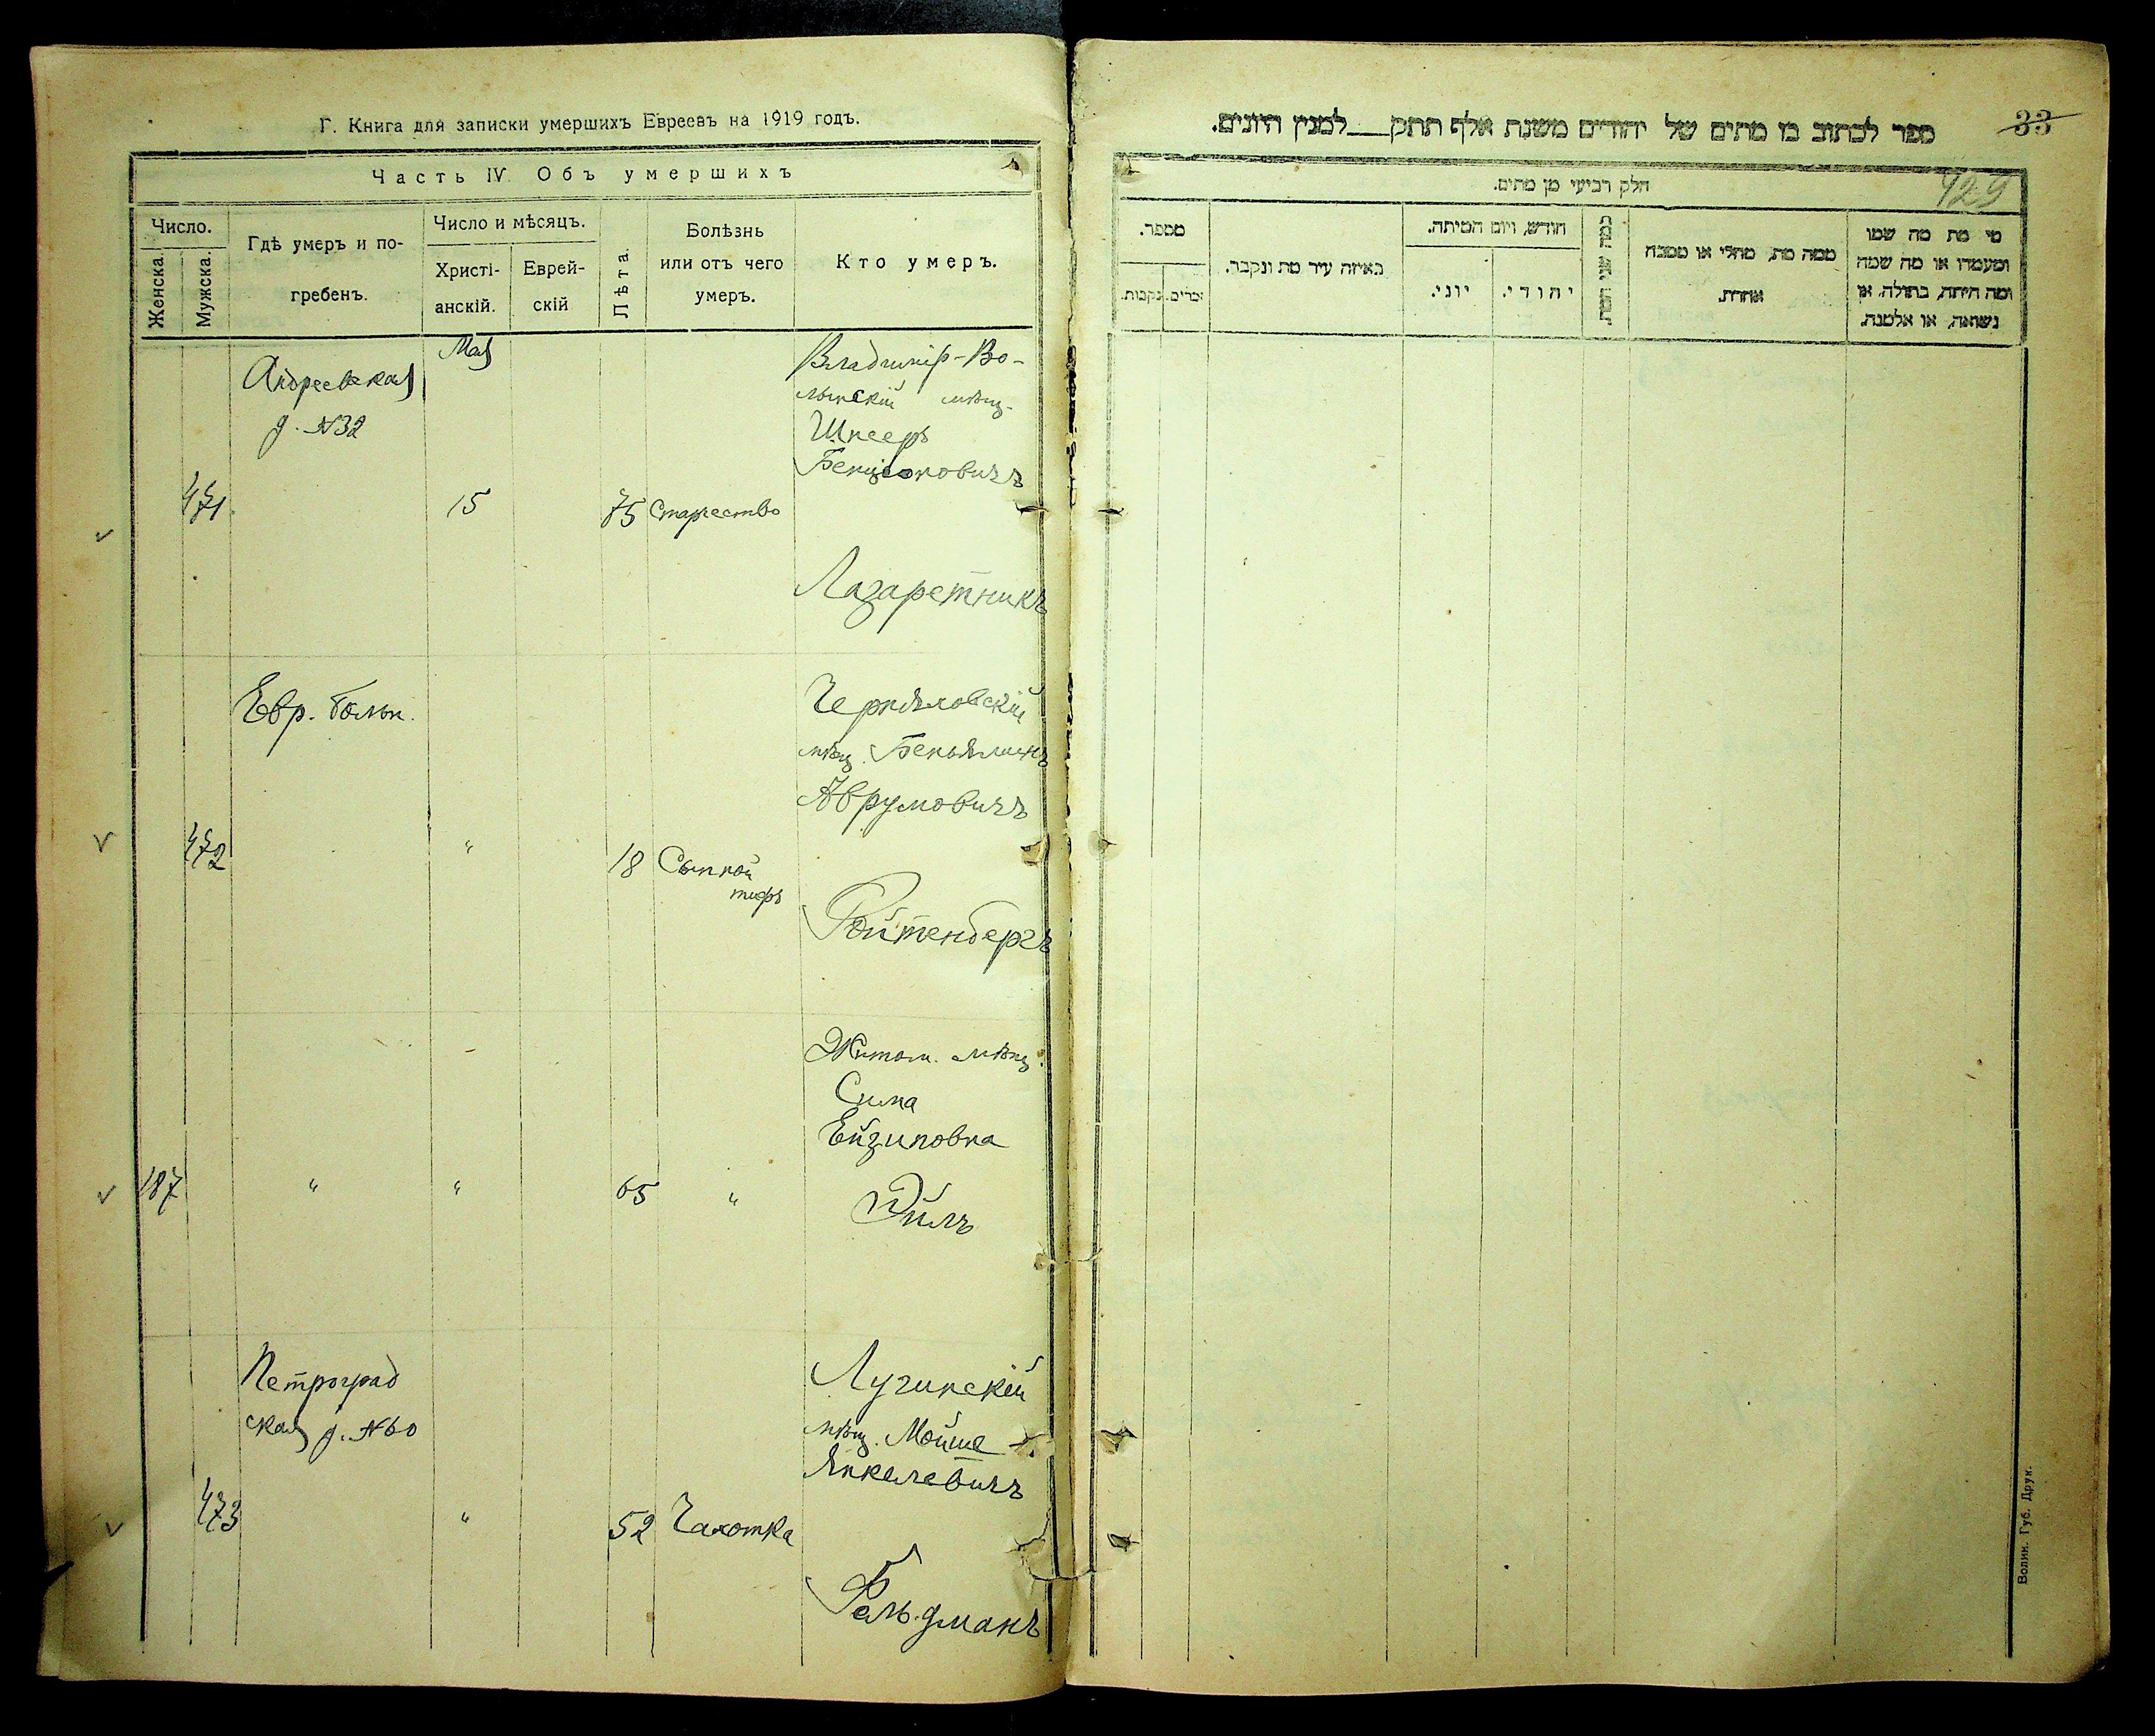 Г. Книга для записки умершихъ Евреевъ на 1919 годъ.
Часть IV. Объ умершихъ
Число.
Женска.
Мужска.
Гдѣ умеръ и по-
гребенъ.
Число и мѣсяцъ.
Христі-
анскій.
Еврей-
скій
Лѣта.
Болѣзнь
или отъ чего
умеръ.
Кто умеръ.
Мая
Андреевская
д. №32
Владимір-Во-
лынскій мѣщ.
Шнееръ
Бенціоновичъ
471
15
75
Старчество
Лазаретникъ
Евр. больн.
Черняховскій
мѣщ. Беньяминъ
Аврумовичъ
472
"
18
Сыпной
тифъ
Ройтенбергъ
Житом. мѣщ.
Сима
187
"
"
65
"
Петроград
ская д. №60
Лугинскій
мѣщ. Мойше
Янкелевичъ
473
"
52
Чахотка
Фельдманъ
33
ספר לכתוב בו מתים של יהודים משנת אלף תתק___למנין היונים.
429
חלק רביעי מן מתים.
מי מת מה שמו
ומעמדו או מה שמה
ומה היתה, בתולה, או
נשואה, או אלמנה.
ממה מת, מחלי או מסבה
אחרת.
חודש, ויום המיתה.
יהודי.
יוני.
באיזה עיר מת ונקבר.
מספר.
זכרים.
נקבות.
Волин. Губ. Друк.